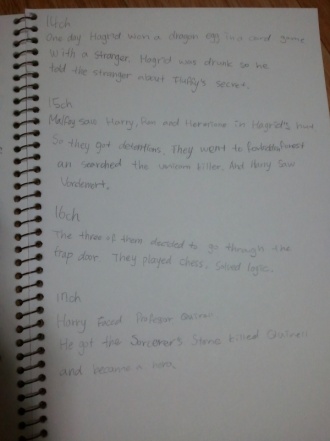 14ch
One day Hagrid won a dragon egg in a card game
with a stranger. Hagrid was drunk so he
told the stranger about Fluffy's secret.
15ch
Malfoy saw Harry, Ron and Hermione in Hagrid's hut.
So they got detentions. They went to Forbidden Forest
an searched the unicorn killer. And Harry saw
Voldemort.
16ch
The three of them decided to go through the
trap door. They played chess, solved logic.
17ch
Harry Professor
He got the Sorcerer's Stone killed
and became a hero.